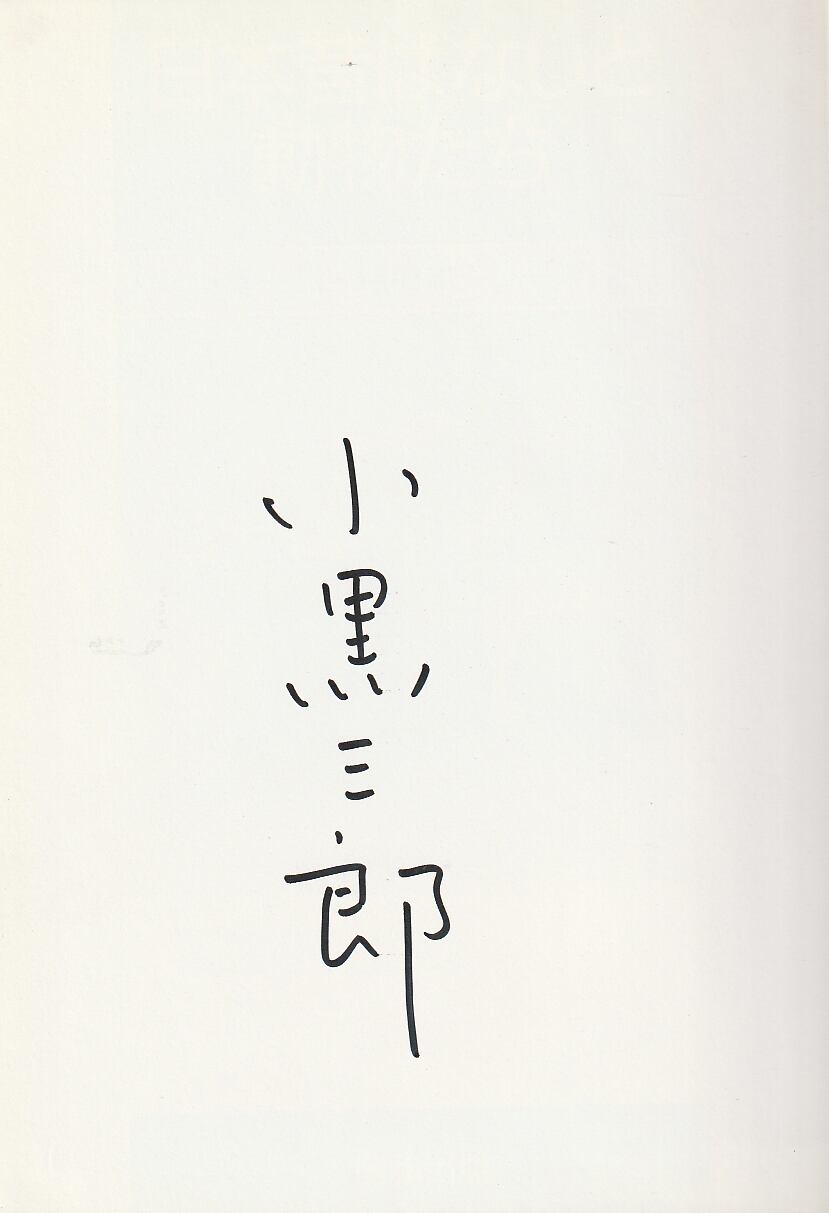 小黒三郎